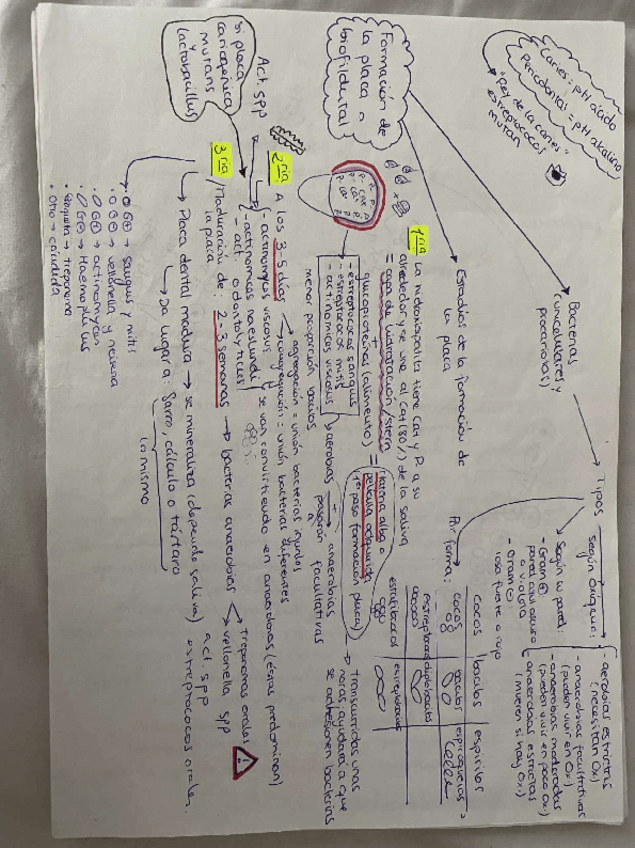 Caries = pH ácido
Periodontal = pH alcalino
"pez de la caries"
estreptococos
mutan
Formación de
la placa o
biofild dental
Bacterias
(unicelulares y
procariotas)
Tipos
según oxígeno:
- aerobias estrictas
(necesitan O2)
- anaerobias facultativas
(pueden vivir en O2)
- anaerobias moderadas
(pueden vivir en poco O2)
- anaerobias estrictas
(mueren si hay O2)
Según su pared:
- Gram ⊕:
pared azul oscuro
o violeta
- Gram ⊖:
rosa fuerte o rojo
Por forma:
cocos
bacilos
espirilos
cocos
bacilos
espiroquetas
estreptococos
diplobacilos
estafilococos
estreptobacilos
Estadios de la formación de
la placa
1ria La hidroxiapatita tiene Ca+ y P a su
alrededor y se une al Ca+ (80%) de la saliva
= capa de hidratación/stern
+
glicoproteínas (alimento) = materia alba o
película adquirida
(1er paso formación placa)
Transcurridas unas
horas, ayudará a que
se adhesionen bacterias
- estreptococos sanguis
- estreptococos mitis
- actinomices viscosus
menor proporción bacilos
aerobias → anaerobias
pasarán
a
facultativas
2ria A los 3-5 días
agregación = unión bacterias iguales
coagregación = unión bacterias diferentes
Act. spp
- actinomyces viscosus
- actinomices naeslundii
- act. odontolyticus
se van convirtiendo en anaerobias (éstas predominan)
si placa
cariogénica
mutans
y
lactobacillus
3ria Maduración de
la placa: 2-3 semanas → bacterias anaerobias
treponemas orales
veillonella spp
Placa dental madura → se mineraliza (depende saliva)
act. spp
estreptococos orales.
Da lugar a: Sarro, cálculo o tártaro
lo mismo
C G ⊕ → sanguis y mitis
C G ⊖ → vellonella y neiseria
B G ⊕ → actinomyces
B G ⊖ → Haemophilus
Espiroqueta → treponema
Otro → cándida